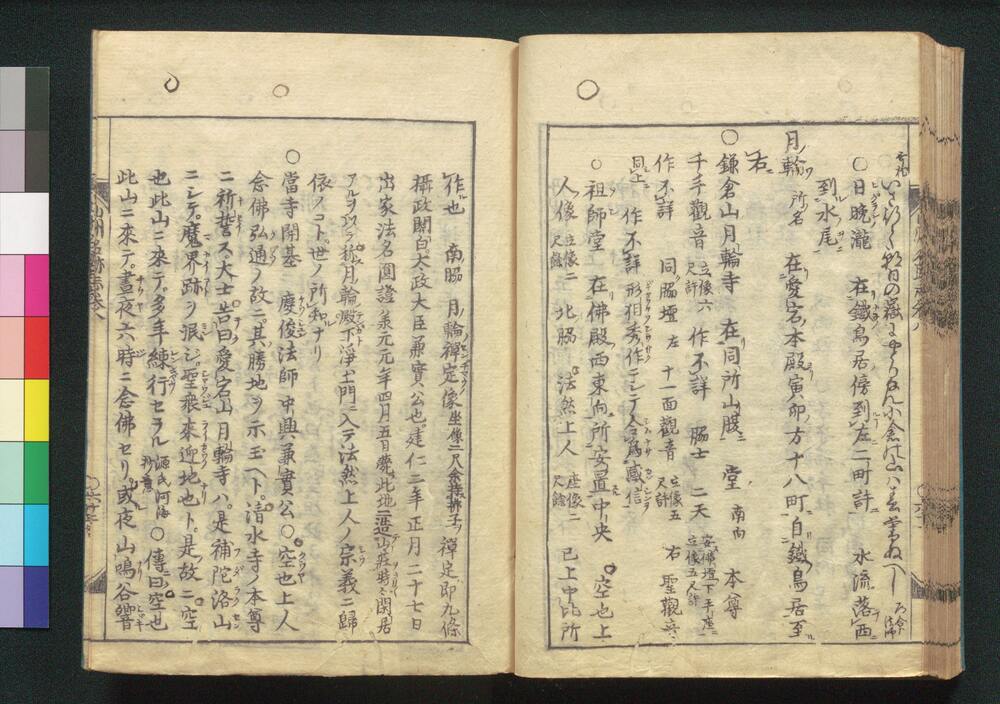 ○日晩瀧 在鐵鳥居傍到左二町計 水流落西
到水尾
月輪 所名 在愛宕本殿寅卯方十八町自鐵鳥居至
右
○鎌倉山月輪寺 在同所山腹 堂 南向 本尊
千手觀音 立像六尺計 作不詳 脇士 二天 安佛壇下手座立像五尺計
作不詳 同脇壇左 十一面觀音 立像五尺計 右 聖觀音
同上 作不詳形相秀作ニシテ令為感信
○祖師堂 在佛殿西東向所安置中央 空也上
人像 立像二尺餘 北脇 法然上人 座像二尺餘 已上中比所
作也 南脇 月輪禪定像 坐像二尺余 禪定即九條
攝政關白太政大臣兼實公也建仁二年正月二十七日
出家法名圓證 承元元年四月五日薨 此地ニ造山莊時々閑居
アル 月輪殿下淨土門ニ入テ法然上人ノ宗義ニ歸
依ノコト世ノ所知ナリ
○當寺開基 慶俊法師 中興兼實公○空也上人
念佛弘通ノ故ニ其勝地ヲ示玉ヘト清水寺ノ本尊
ニ祈誓ス大士告曰愛宕山月輪寺ハ是補陀洛山
ニシテ魔界跡ヲ泯シ聖衆來迎地也ト是故ニ空
也此山ニ來テ多年練行セラル 源氏河海抄意 ○傳曰空也
此山ニ來テ晝夜六時ニ念佛セリ或夜山鳴谷響